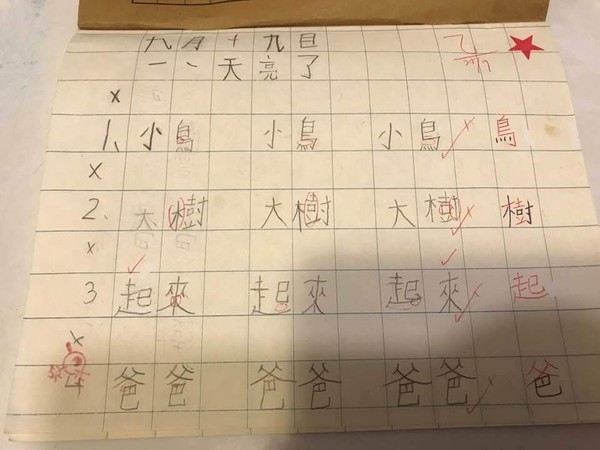 九月十九日
一、天亮了
1、小鳥 小鳥 小鳥 鳥
2、大樹 大樹 大樹 樹
3 起來 起來 起來 起
4 爸爸 爸爸 爸爸 爸